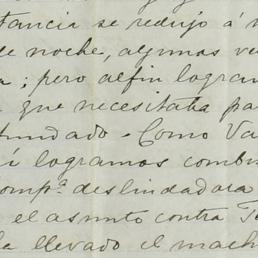 tancia se redujo á
de noche, algunas ve
; pero al fin logram
que necesitaba pa
fundado - Como Va
í logramos combi
omp.ª deslindadora
el asunto contra
llevado el mach